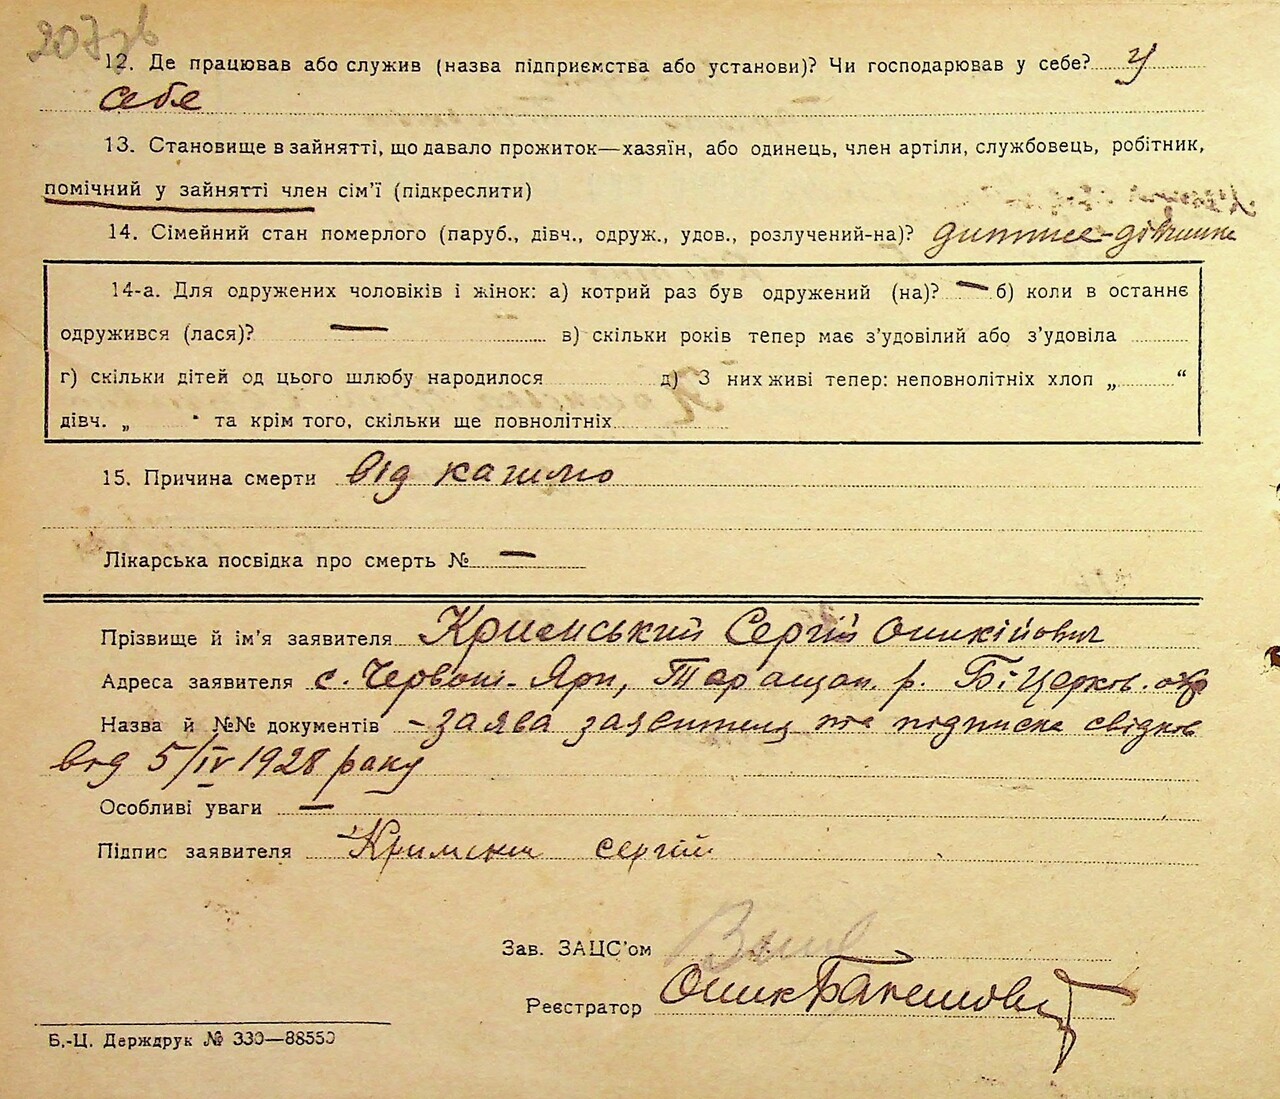 12. Де працював або служив (назва підприємства або установи)? Чи господарював у себе? у
себе
13. Становище в зайнятті, що давало прожиток—хазяїн, або одинець, член артіли, службовець, робітник,
помічний у зайнятті член сім'ї (підкреслити)
14. Сімейний стан померлого (паруб., дівч., одруж., удов., розлучений-на)?
14-а. Для одружених чоловіків і жінок: а) котрий раз був одружений (на)? — б) коли в останнє
одружився (лася)? — в) скільки років тепер має з'удовілий або з'удовіла
г) скільки дітей од цього шлюбу народилося д) З них живі тепер: неповнолітніх хлоп „ “
дівч. „ “ та крім того, скільки ще повнолітніх
15. Причина смерти від кашлю
Лікарська посвідка про смерть № —
Прізвище й ім'я заявителя Кримський Сергій
Адреса заявителя с. Червоні-Яри, Таращан. р. Б. Церков. окр
Назва й №№ документів – заява заявителя та підписка свідків
від 5/IV 1928 року
Особливі уваги —
Підпис заявителя Кримськи сергій
Зав. ЗАЦС'ом
Реєстратор
Б.-Ц. Держдрук № 330—88550